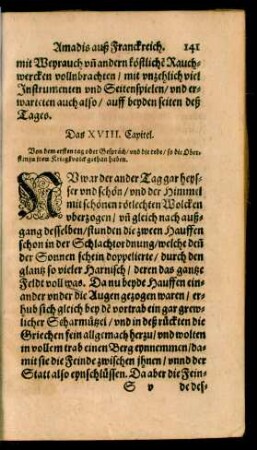 Amadis auß Franckreich. 141
mit Weyrauch vñ andern köstlichẽ Rauch-
wercken vollnbrachten / mit vnzehlich viel
Instrumenten vnd Seitenspielen / vnd er-
warteten auch also / auff beyden seiten deß
Tages.
Das XVIII. Capitel.
Von dem ersten tag oder Gespräch / vnd die rede / so die Ober-
sten zu irem Kriegßvolck gethan haben.
NV war der ander Tag gar heys-
ser vnd schön / vnd der Himmel
mit schönen rötlechten Wolcken
vberzogen / vñ gleich nach auß-
gang desselben / stunden die zween Hauffen
schon in der Schlachtordnung / welche deñ
der Sonnen schein doppelierte / durch den
glantz so vieler Harnisch / deren das gantze
Feldt voll was. Da nu beyde Hauffen ein-
ander vnder die Augen gezogen waren / er-
hub sich gleich bey dẽ vortrab ein gar grew-
licher Scharmützel / vnd in deß rückten die
Griechen fein allgemach herzu / vnd wolten
in vollem trab einen Berg eynnemmen / da-
mit sie die Feinde zwischen jhnen / vnnd der
Statt also eynschlüssen. Da aber die Fein-
S v de des-